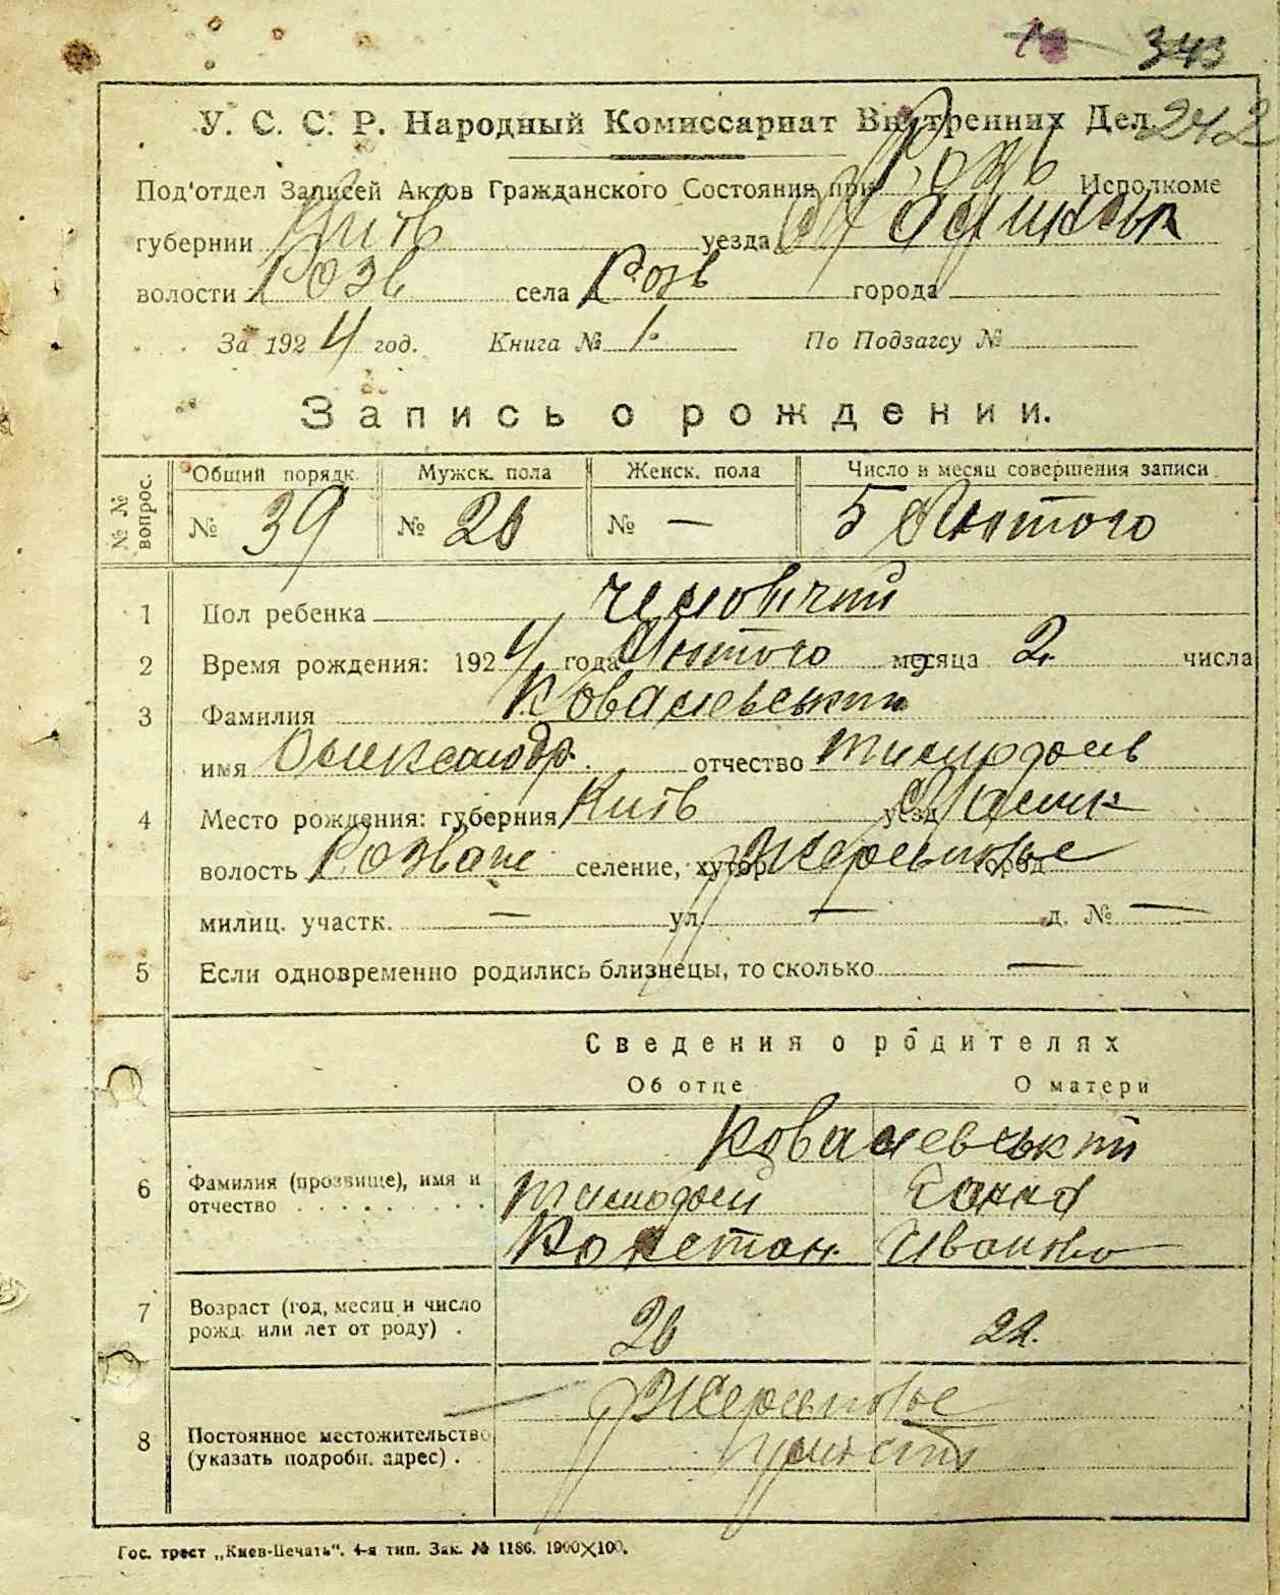 343
У. С. С. Р. Народный Комиссариат Внутренних Дел 242
Под'отдел Записей Актов Гражданского Состояния при Розв Исполкоме
губернии Київ уезда
волости Розв села Розв города
За 1924 год. Книга № 1. По Подзагсу №
Запись о рождении.
№ № вопрос. Общий порядк. Мужск. пола Женск. пола Число и месяц совершения записи
№ 39 № 26 № — 5 Лютого
1 Пол ребенка чоловічий
2 Время рождения: 1924 года Лютого месяца 2 числа
3 Фамилия Ковалевський
имя Олександр. отчество
4 Место рождения: губерния Київ уезд
волость Розваж селение, хутор город
милиц. участк. — ул. — д. № —
5 Если одновременно родились близнецы, то сколько —
Сведения о родителях
Об отце О матери
Ковалевські
6 Фамилия (прозвище), имя и отчество
Констан. Иванова
7 Возраст (год, месяц и число рожд. или лет от роду) . 26 22.
8 Постоянное местожительство (указать подробн. адрес) .
Гос. трест „Киев-Печать". 4-я тип. Зак. № 1186. 1900×100.